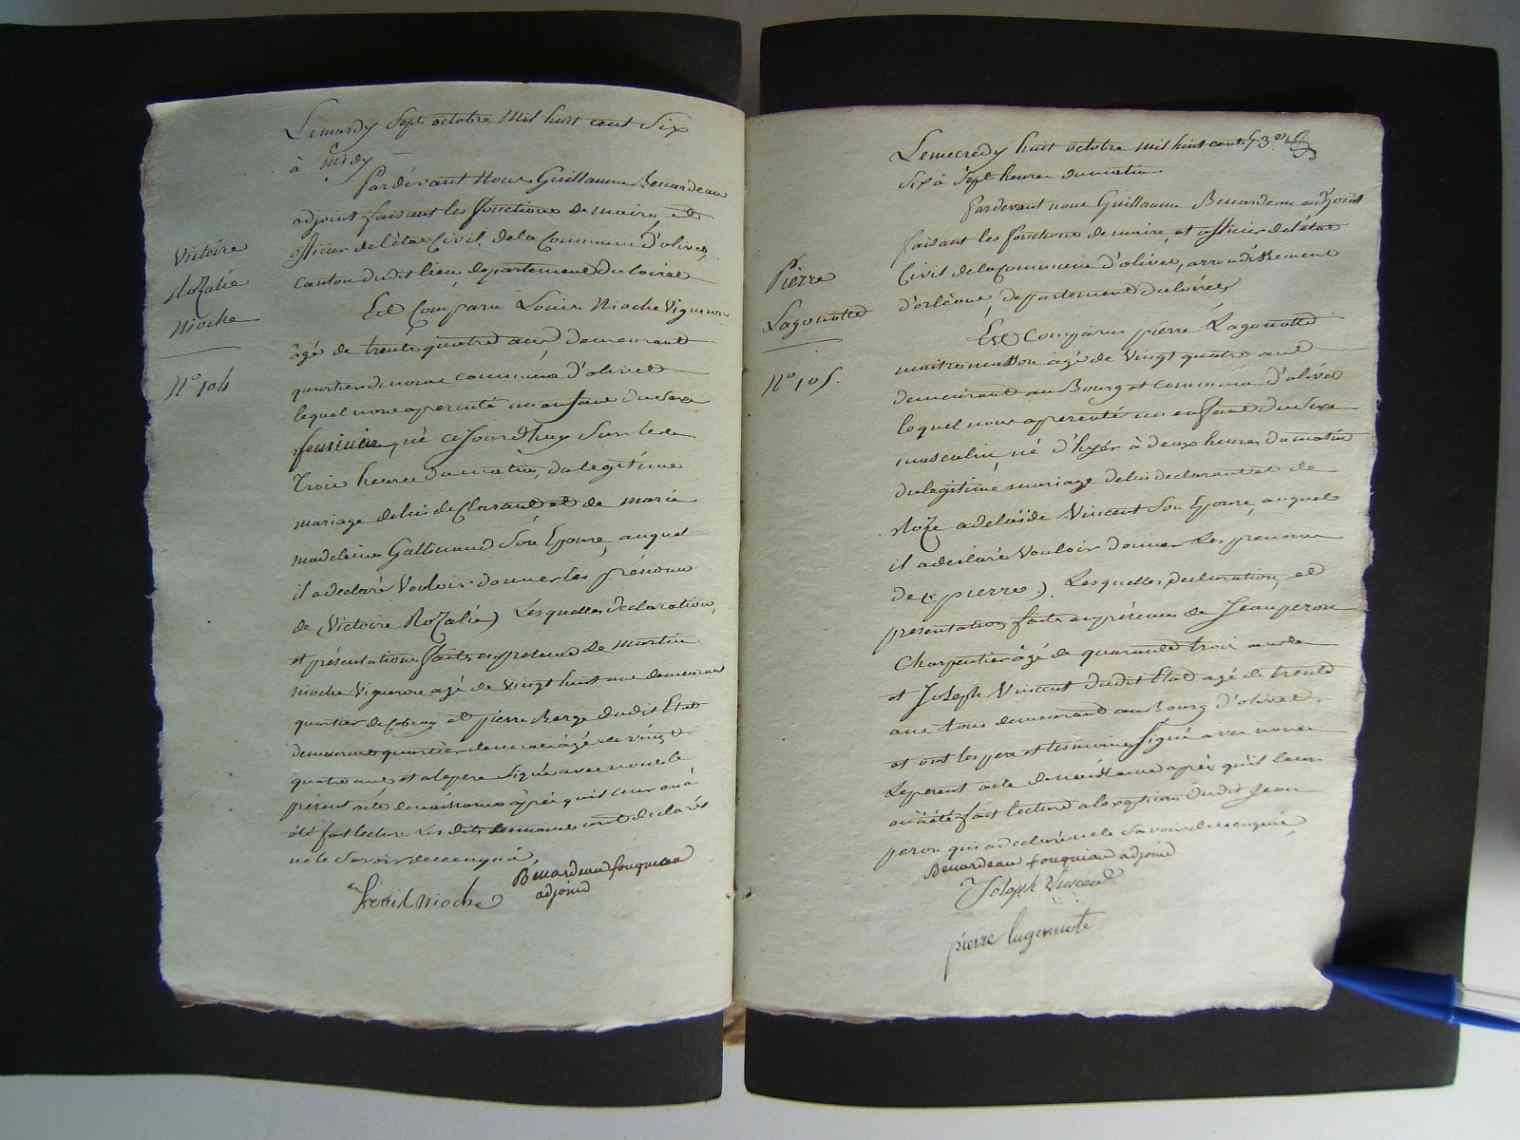 Lemardy Sept octobre mil huit cent Six
à midy
Pardevant Nous Guillaume Benardeau
adjoint faisant les fonctions de maire, et
officier de l'état Civil de la Commune d'olivet,
Canton dudit lieu, departement du loiret
Victoire
Rozalie
nioche
N° 104
Est Comparu Louis Nioche Vigneron
âgé de trente quatre ans, demeurant
quartier du commune d'olivet
lequel nous a presenté un enfant du Sexe
feminin, né cejourd'huy Sur les
trois heures du matin, du legitime
mariage de lui declarant et de marie
madeleine Gallinand Son Epouse, auquel
il a declaré Vouloir donner les prénoms
de (Victoire Rozalie) Lesquelles declaration,
et présentation faites en presence de martin
nioche Vigneron agé de Vingt huit ans demeurant
quartier de et pierre Berge dudit Etat
demeurant quartier agé de vingt
quatre ans, et a le pere Signé avec nous le
présent acte de naissance après qu'il leur en à
été fait lecture les dits temoins ont declarés
ne le Savoir de ce enquis,
Louis Nioche
Benardeau fouqueau
adjoint
Le mecredy huit octobre mil huit cent 53.e
Six à Sept heures du matin
Pardevant nous Guillaume Benardeau adjoint
faisant les fonctions de maire, et officier de l'état
Civil de la Commune d'olivet, arrondissement
d'orléans, departement du loiret
Pierre
Lagoutte
N° 105.
Est Comparu pierre Lagoutte
maitre masson agé de Vingt quatre ans
demeurant au Bourg et commune d'olivet
lequel nous a presenté un enfant du Sexe
masculin, né d'hyér à deux heures du matin
du legitime mariage de lui declarant et de
Roze adelaide Vincent Son Epouse, auquel
il a declaré Vouloir donner les prenoms
de (pierre). Lesquelles declaration, et
presentation faite en présence de Jean peron
Charpentier âgé de quarante trois ans
et Joseph Vincent dudit Etat agé de trente
ans tous demeurant au Bourg d'olivet,
et ont les pere et temoins Signé avec nous
Le present acte de naissance après qu'il leur
en à été fait lecture a l'exception dudit Jean
peron qui a declaré ne le Savoir de ce enquis,
Benardeau fouqueau adjoint
Joseph Vincent
pierre lagoutte